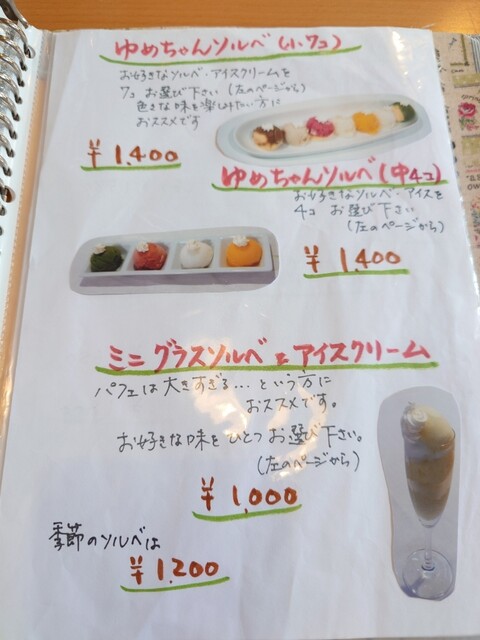 ゆめちゃんソルベ(小7コ)
お好きなソルベ・アイスクリームを
7コ お選び下さい(左のページから)
色々な味を楽しみたい方に
おススメです
¥1,400
ゆめちゃんソルベ(中4コ)
お好きなソルベ・アイスを
4コ お選び下さい
(左のページから)
¥1,400
ミニグラスソルベとアイスクリーム
パフェは大きすぎる…という方に
おススメです。
お好きな味をひとつお選び下さい。
(左のページから)
¥1,000
季節のソルベは
¥1,200